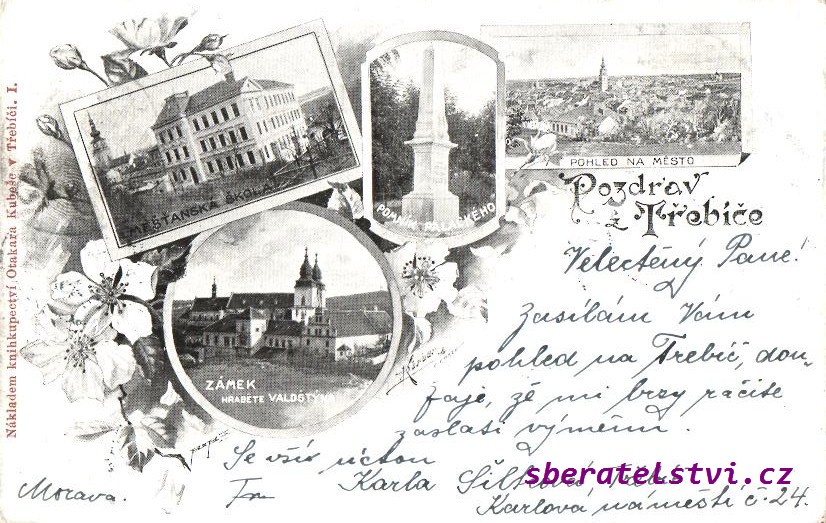 Nákladem knihkupectví Otakara Kubeše v Třebíči. I.
MĚŠŤANSKÁ ŠKOLA
POMNÍK PALACKÉHO
POHLED NA MĚSTO
Pozdrav
z Třebíče
ZÁMEK
HRABĚTE VALDŠTÝNA
Velectěný Pane!
Zasílám Vám
pohled na Třebíč, dou-
faje, že mi brzy račíte
zaslati výměnu.
Se vší úctou
Karla
Karlovo náměstí č. 24.
Morava.
sberatelstvi.cz